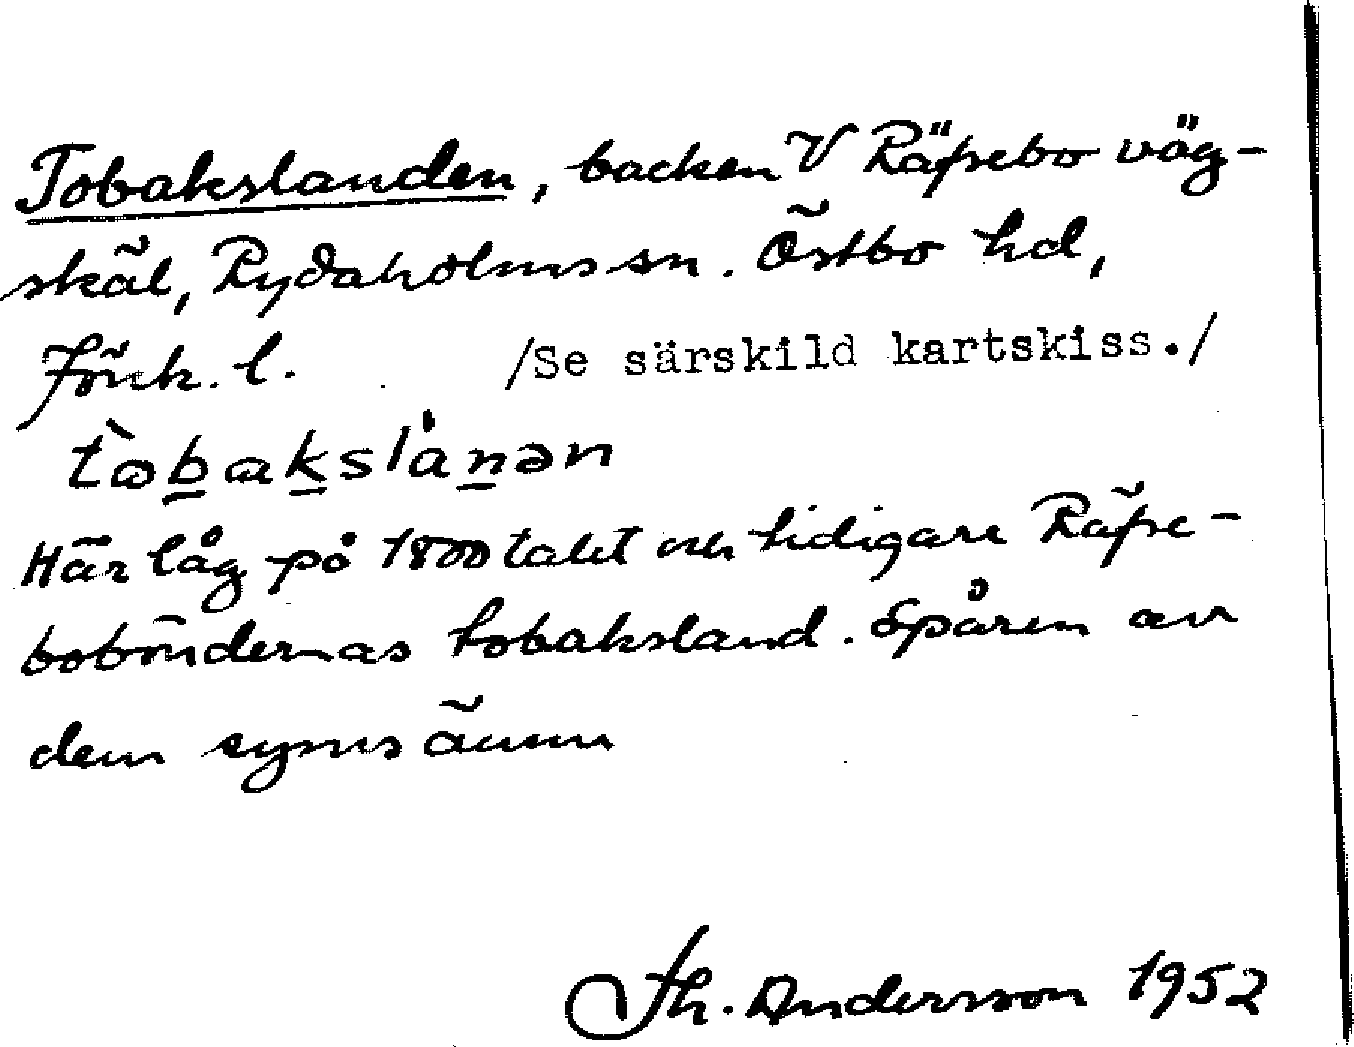 Tobakslanden, backen V Räfsebo väg-
skäl, Rydaholms sn. Östbo hd,
Jönk. l. /Se särskild kartskiss./
Här låg på 1800 talet och tidigare Räfse-
boböndernas tobaksland. Spåren av
dem synas ännu
Th. Andersson 1952